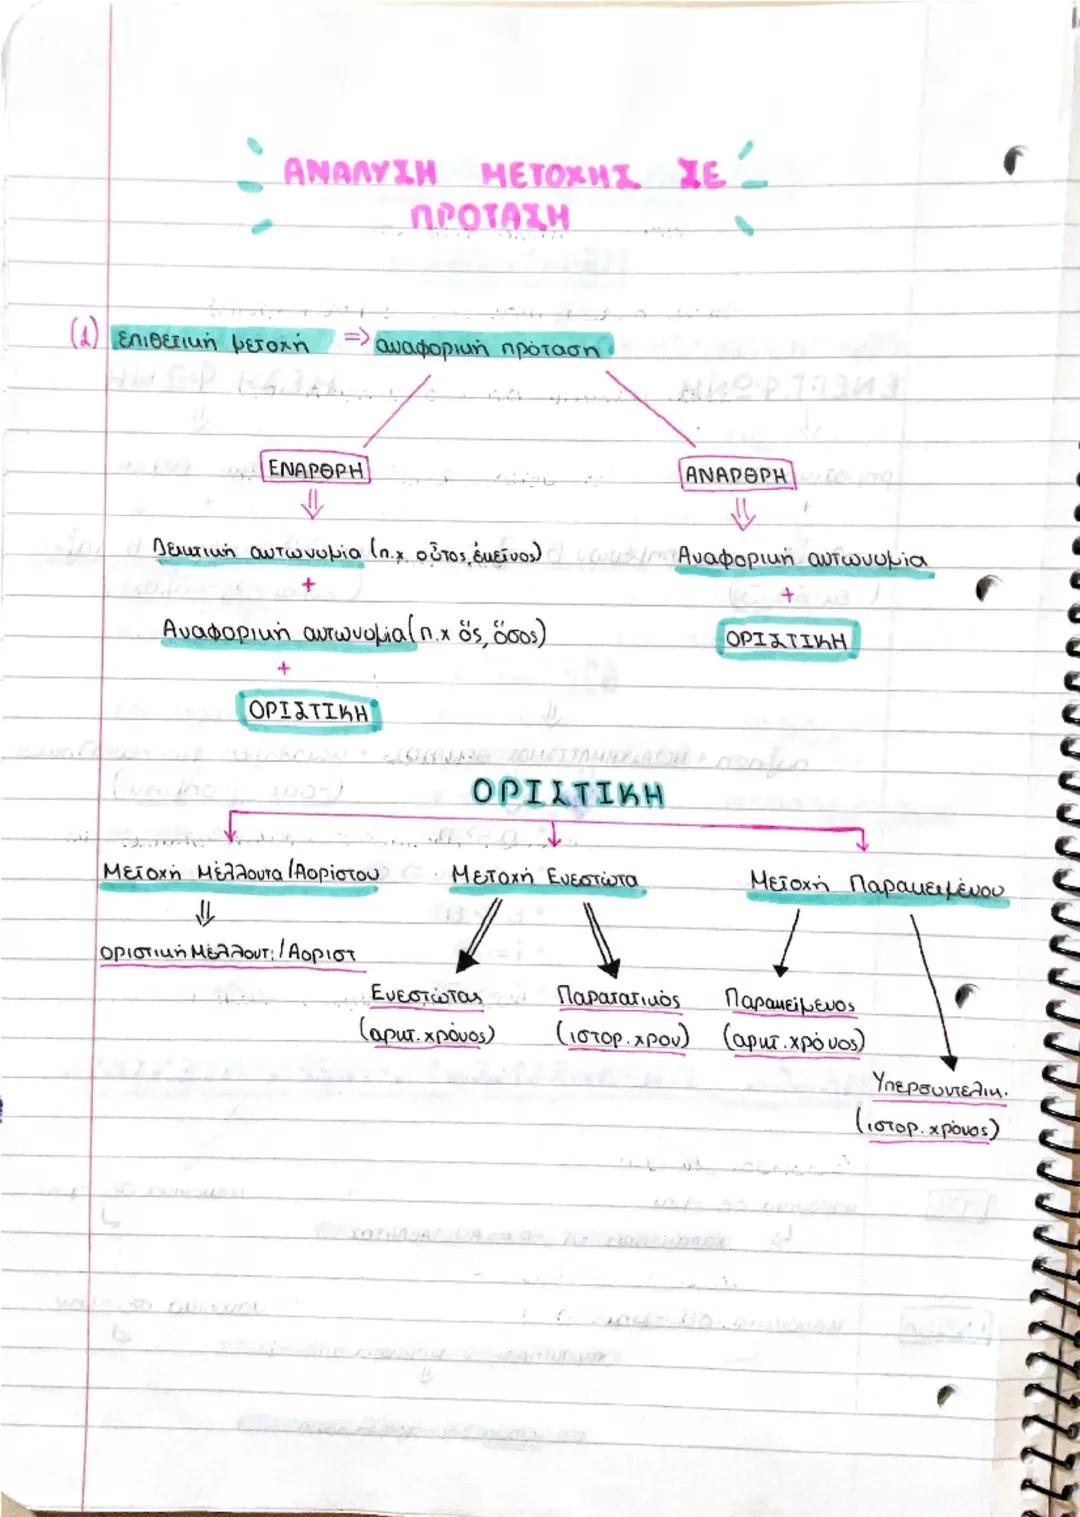 ΑΝΑΛΥΣΗ ΜΕΤΟΧΗΣ ΣΕ
ΠΡΟΤΑΣΗ
(1) επιθετική μετοχή => αναφορική πρόταση
ΕΝΑΡΘΡΗ
ΑΝΑΡΘΡΗ
⇓
⇓
Δεικτική αντωνυμία (π.χ. οὗτος, ἐκεῖνος)
Αναφορική αντωνυμία
+
+
Αναφορική αντωνυμία (π.χ ὅς, ὅσος)
ΟΡΙΣΤΙΚΗ
+
ΟΡΙΣΤΙΚΗ
ΟΡΙΣΤΙΚΗ
Μετοχή Μέλλοντα/Αορίστου
Μετοχή Ενεστώτα
Μετοχή Παρακειμένου
⇓
οριστική Μέλλοντ./Αοριστ
Ενεστώτας
(αρκτ. χρόνος)
Παρατατικός
(ιστορ. χρον)
Παρακείμενος
(αρκτ. χρόνος)
Υπερσυντελικ.
(ιστορ. χρόνος)